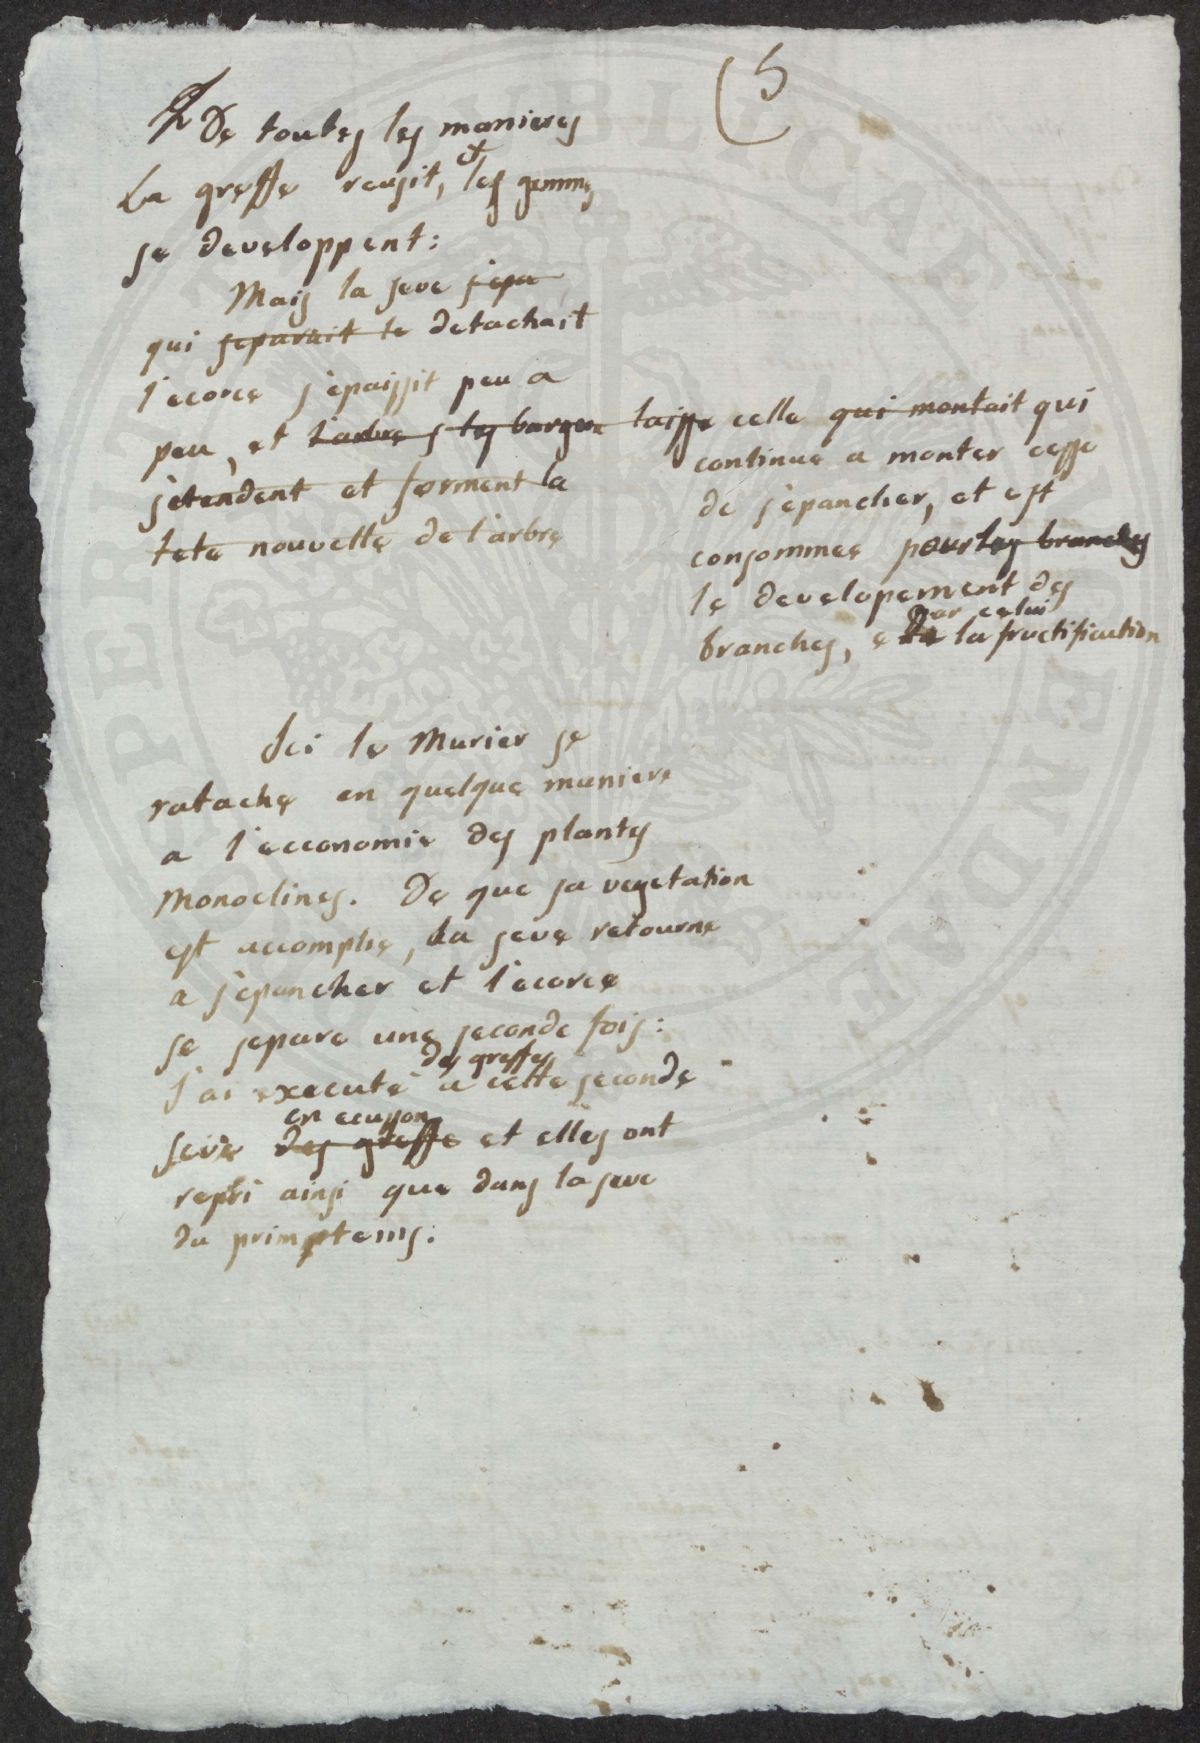 (5
De toutes les manieres
La greffe reusit, et les gemmes
se developpent:
Mais la seve s'epa
qui separait le detachait
l'ecorce s'epaissit peu a
peu, et l'arbre s les bargeon laisse celle qui montait qui
s'etendent et forment la
tete nouvelle de l'arbre
continue a monter cesse
de s'epancher, et est
consommee pour les branches
le developement des
par celui
branches, e la fructification
Ici le Murier se
ratache en quelque maniere
a l'ecconomie des plantes
Monoclines. De que sa vegetation
est accomplie, la seve retourne
a s'epancher et l'ecorce
se separe une seconde fois:
des greffes
j'ai executé a cette seconde
en ecusson
seve des greffe et elles ont
repri ainsi que dans la seve
du primptems.